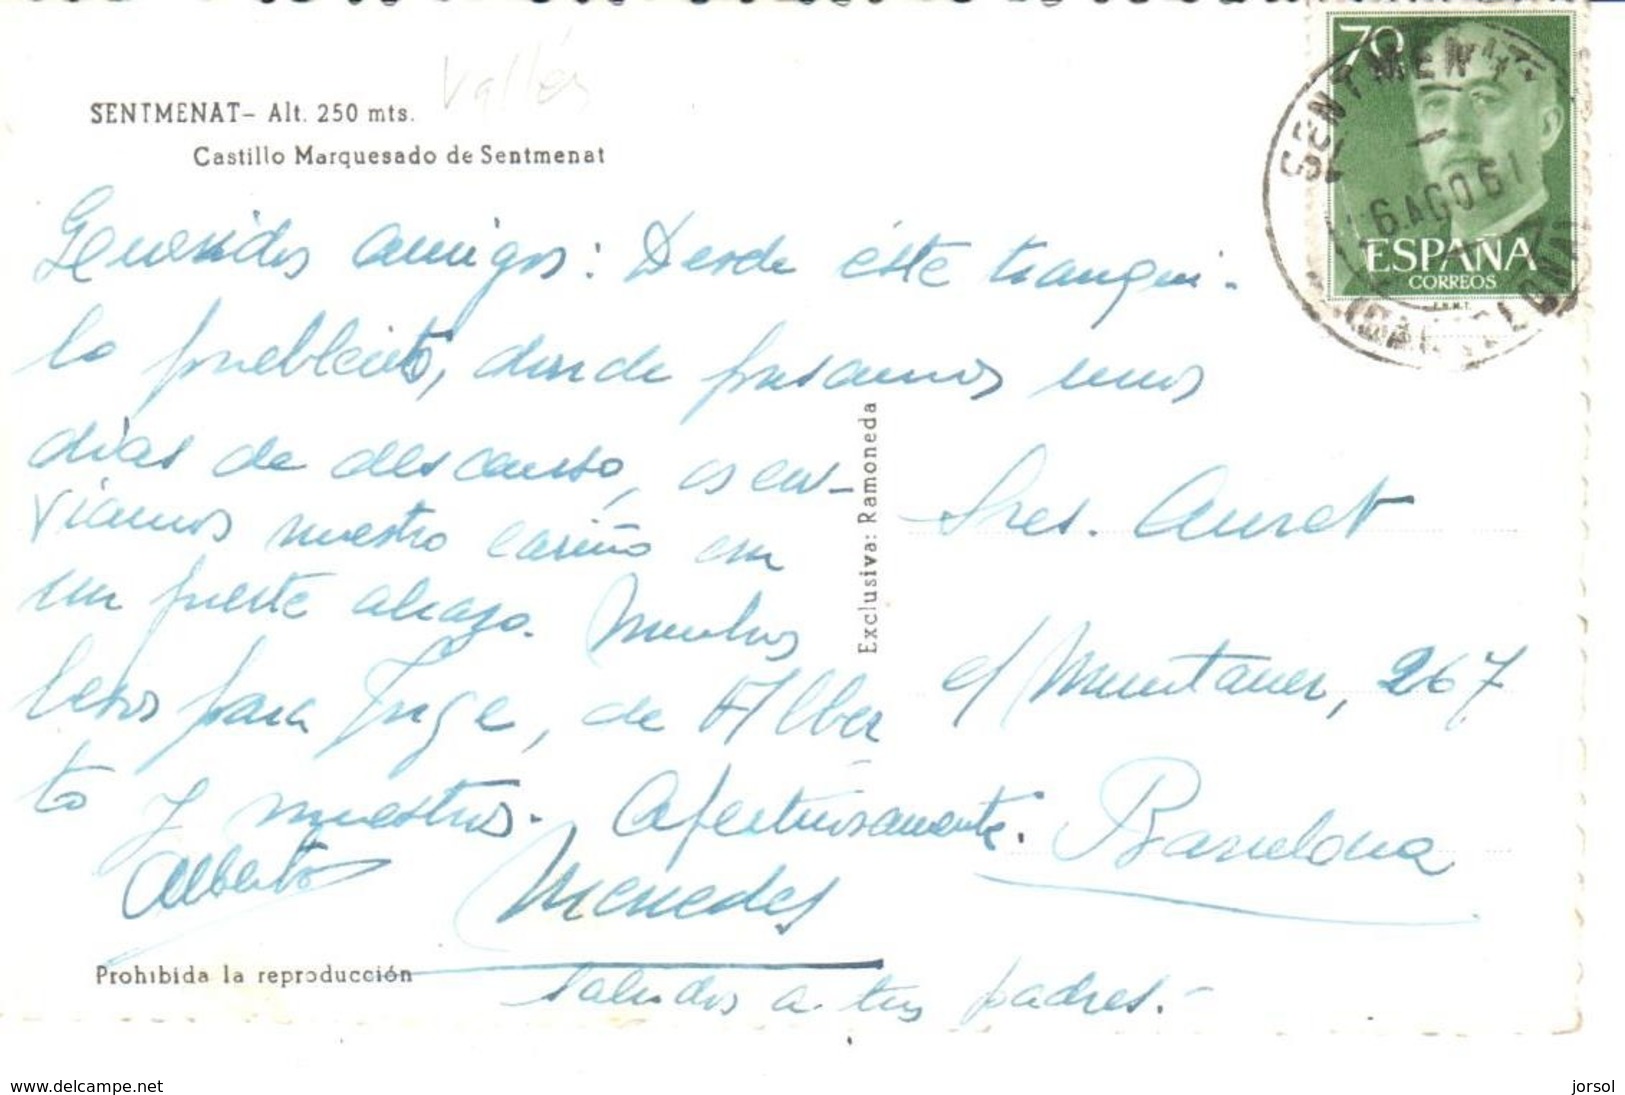 Vallés
SENTMENAT– Alt. 250 mts.
Castillo Marquesado de Sentmenat
70
SENTMENAT
6 AGO 61
ESPAÑA
CORREOS
F.N.M.T.
(BARCELONA)
Queridos amigos: Desde éste tranqui-
lo pueblecito, donde pasamos unos
dias de descanso, os en-
viamos nuestro cariño en
un fuerte abrazo. Muchos
besos para Jorge, de Alber
to y nuestros. Afectuosamente.
Alberto
Menedes
saludos a tus padres.-
Exclusiva: Ramoneda
Sres. Auret
c/ Muntaner, 267
Barcelona
Prohibida la reproducción
www.delcampe.net
jorsol